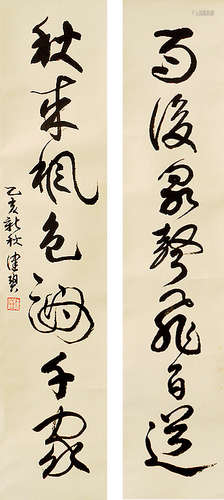 雨後泉聲飛百道
秋來楓色滿千家
乙亥新秋